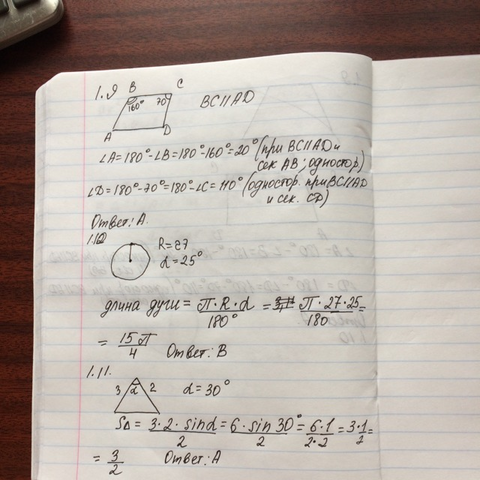 1.9
B C
160° 70°
A D
BC||AD
∠A=180°-∠B=180°-160°=20° (при BC||AD и
сек AB; одностор)
∠D=180°-70°=180°-∠C=110° (одностор. при BC||AD
и сек. CD)
Ответ: A.
1.10
R=27
α=25°
длина дуги = π·R·α/180° = π·27·25/180 =
= 15π/4 Ответ: B
1.11.
3 α 2 α=30°
S△ = 3·2·sinα/2 = 6·sin 30°/2 = 6·1/2·2 = 3·1/2 =
= 3/2 Ответ: A